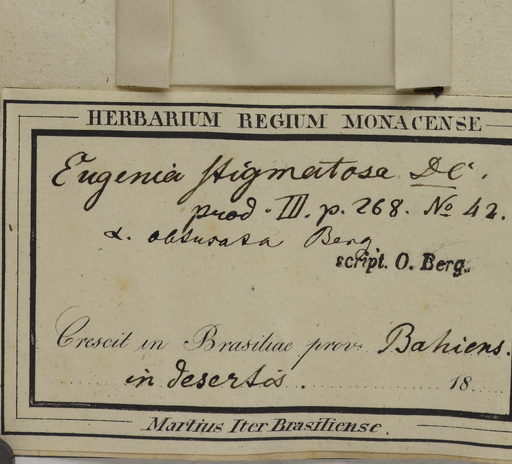 HERBARIUM REGIUM MONACENSE
Eugenia stigmatosa DC.
prod. III. p. 268. No 42.
α. obtusata Berg.
script. O. Berg.
Crescit in Brasiliae prov. Bahiens.
in desertis. 18
Martius Iter Brasiliense.